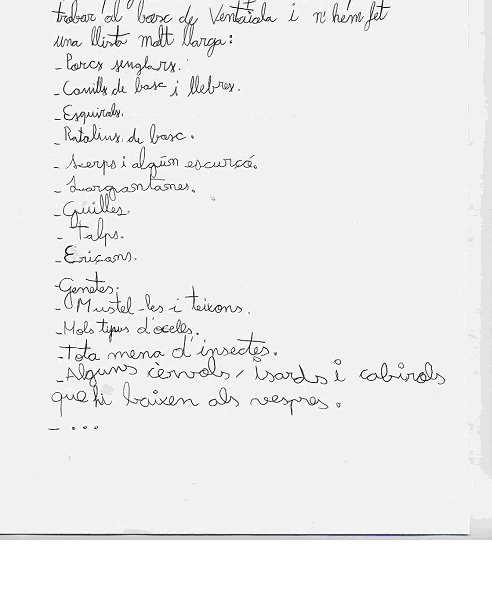 trobar al bosc de Ventaiola i n'hem fet
una llista molt llarga:
- Porcs senglars.
- Conills de bosc i llebres.
- Esquirols.
- Ratolins de bosc.
- Serps i algún escurçó.
- Sargantanes.
- Guilles.
- Talps.
- Eriçons.
- Genetes.
- Mustel-les i teixons.
- Mols tipus d'ocells.
- Tota mena d'insectes.
- Alguns cèrvols, isards i cabirols
que hi baixen als vespres.
- ...